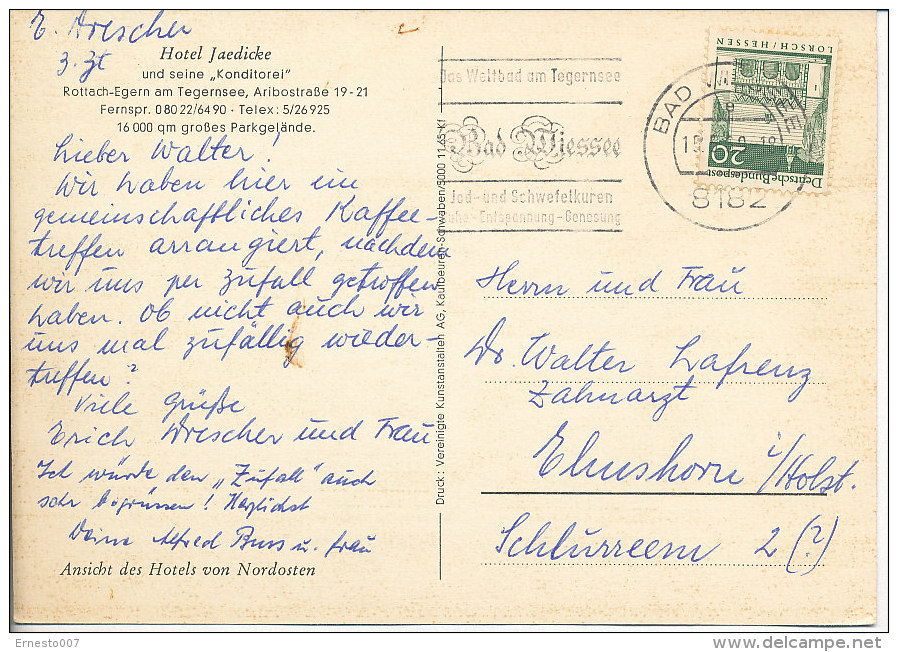 E. Drescher
z. Zt
Hotel Jaedicke
und seine „Konditorei"
Rottach-Egern am Tegernsee, Aribostraße 19-21
Fernspr. 0 80 22/64 90 · Telex: 5/26 925
16 000 qm großes Parkgelände.
Lieber Walter!
Wir haben hier ein
gemeinschaftliches Kaffee-
treffen arrangiert, nachdem
wir uns per Zufall getroffen
haben. Ob nicht auch wir
uns mal zufällig wieder-
treffen?
Viele Grüße
Erich Drescher und Frau
Ich würde den „Zufall" auch
sehr begrüssen! Herzlichst
Deine Alfred Buss u. Frau
Ansicht des Hotels von Nordosten
Druck: Vereinigte Kunstanstalten AG, Kaufbeuren-Schwaben/5000 11 65 Kf
Das Weltbad am Tegernsee
Bad Wiessee
Jod- und Schwefelkuren
Ruhe-Entspannung-Genesung
BAD WIESSEE
8182
LORSCH/HESSEN
20
Deutsche Bundespost
Herrn und Frau
Dr. Walter Lafrenz
Zahnarzt
Elmshorn i/Holst.
2 (?)
Ernesto007
www.delcampe.net